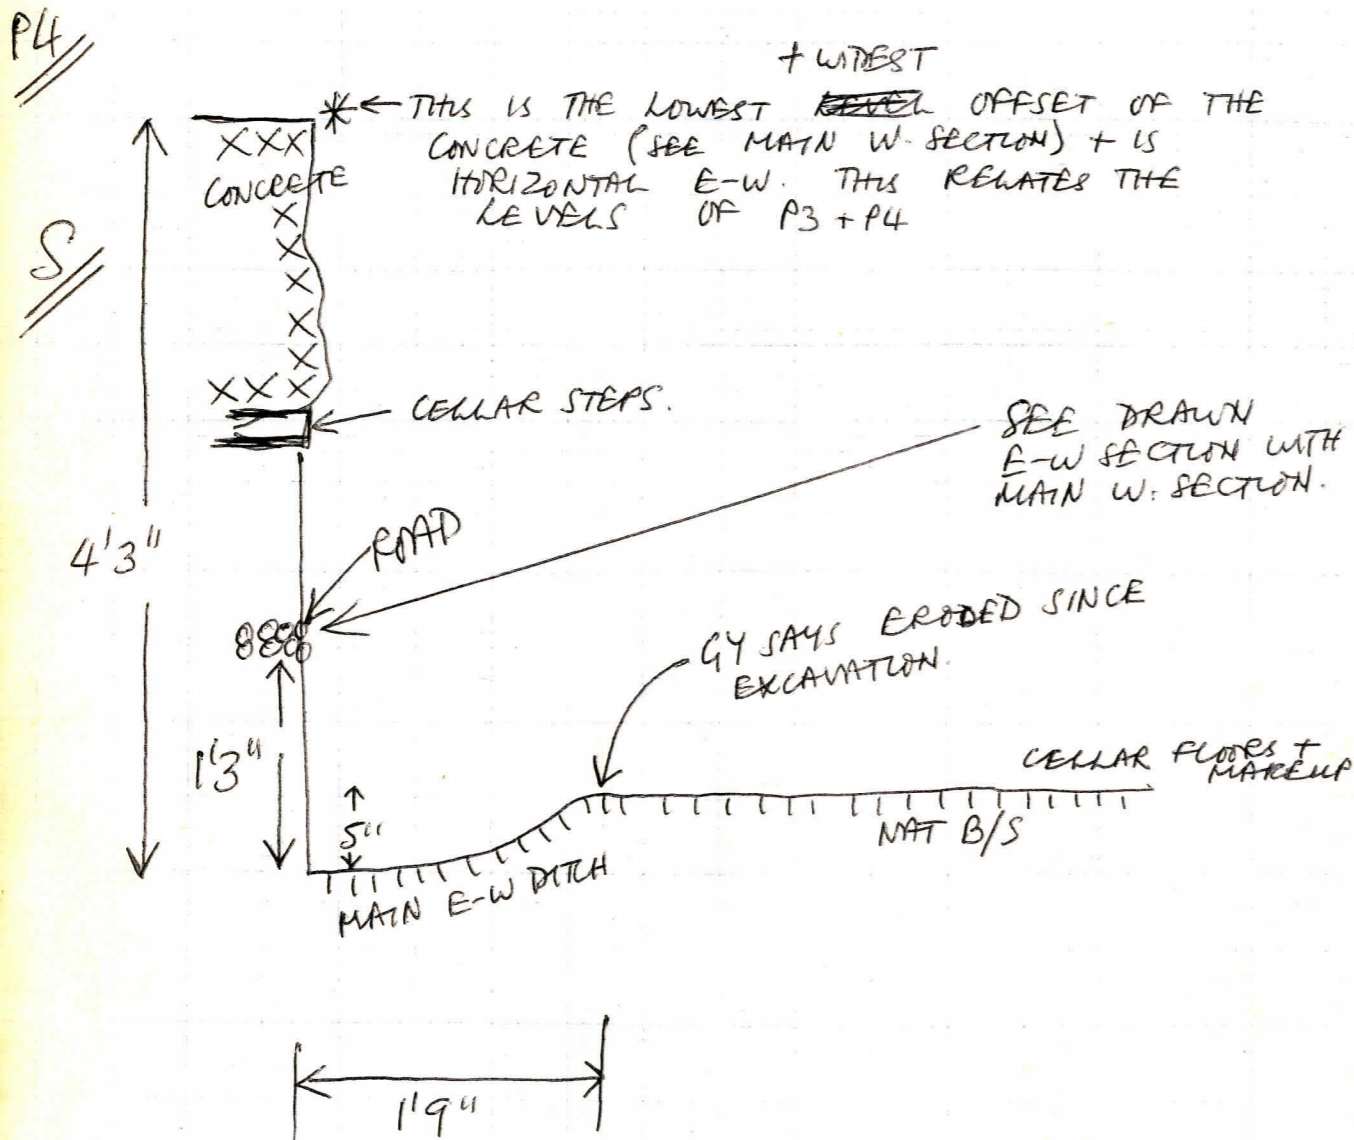 P4
+ WIDEST
← THIS IS THE LOWEST LEVEL OFFSET OF THE
CONCRETE (SEE MAIN W. SECTION) + IS
HORIZONTAL E-W. THIS RELATES THE
LEVELS OF P3 + P4
XXX
CONCRETE
X
X
X
X
X
XXX
S
CELLAR STEPS.
SEE DRAWN
E-W SECTION WITH
MAIN W. SECTION.
4'3"
ROAD
GY SAYS ERODED SINCE
EXCAVATION.
1'3"
5"
CELLAR FLOORS +
MAKEUP
NAT B/S
MAIN E-W DITCH
1'9"